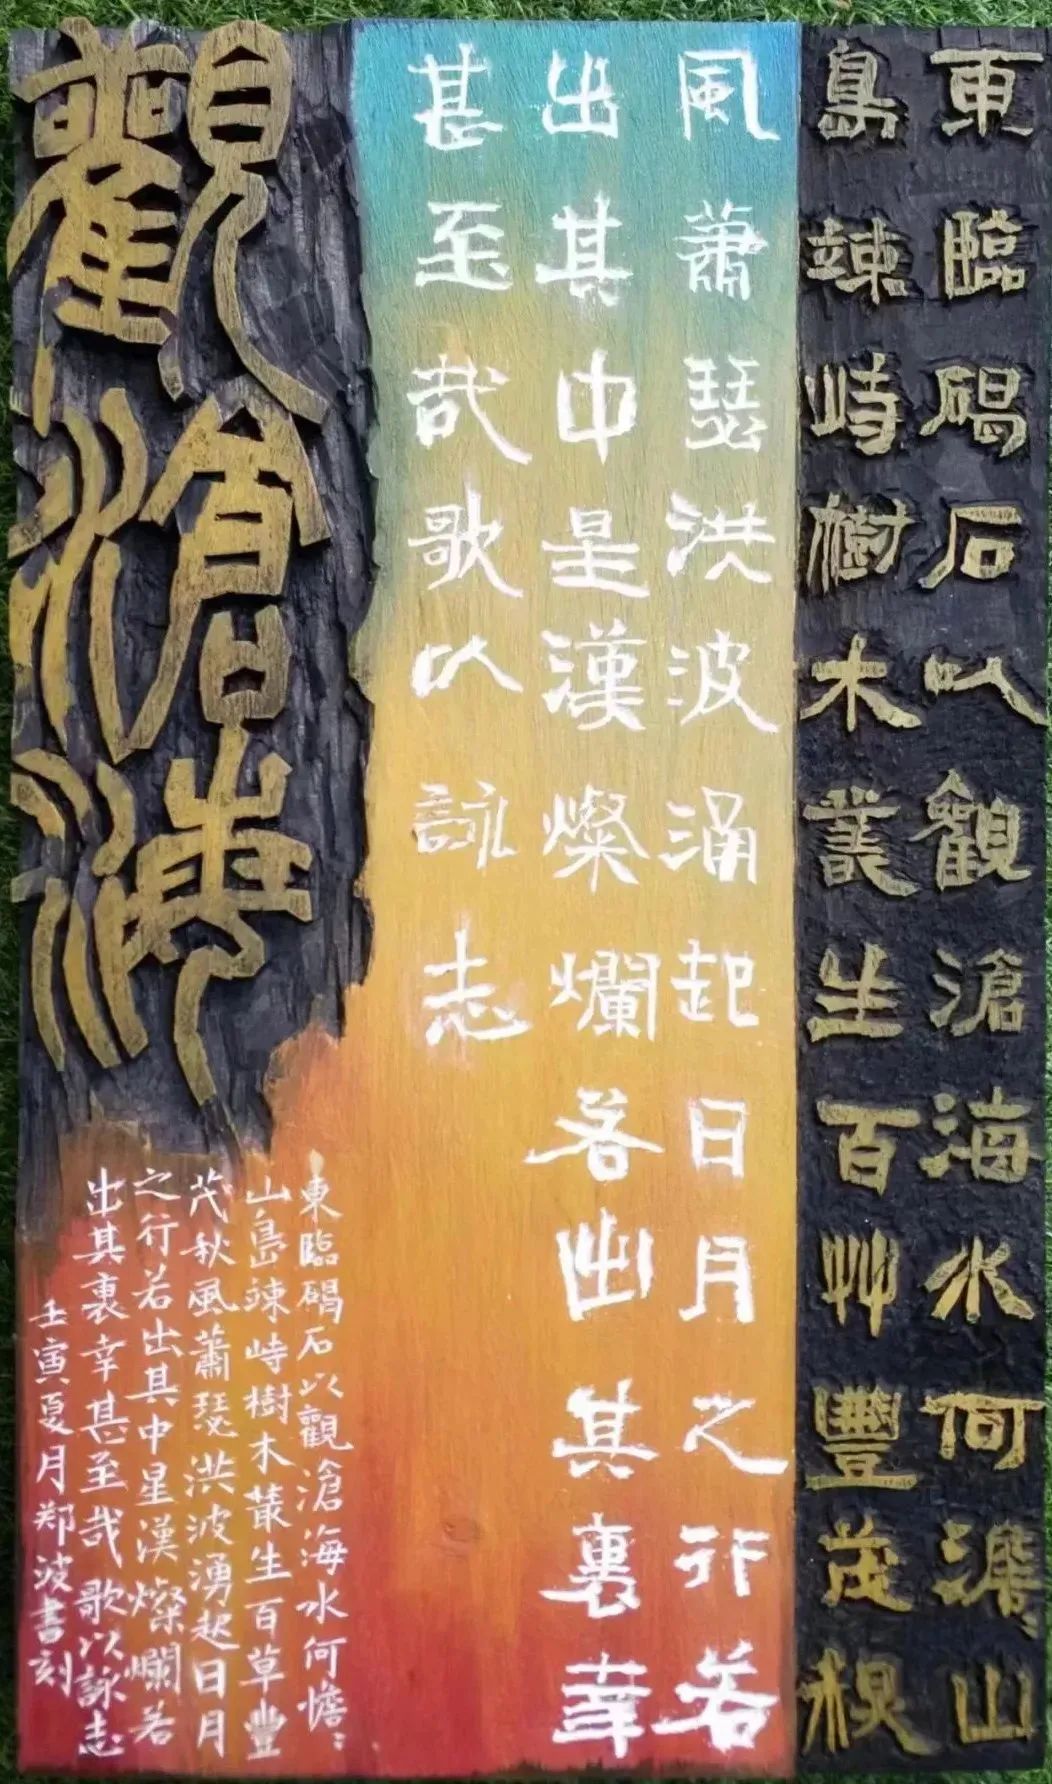 東臨碣石以觀滄海水何澹〻山
島竦峙樹木叢生百艸豐茂秋
風蕭瑟洪波涌起日月之行若
出其中星漢燦爛若出其裏幸
甚至哉歌以詠志
觀滄海
東臨碣石以觀滄海水何憺〻
山島竦峙樹木叢生百草豐
茂秋風蕭瑟洪波湧起日月
之行若出其中星漢燦爛若
出其裏幸甚至哉歌以詠志
壬寅夏月郑波書刻